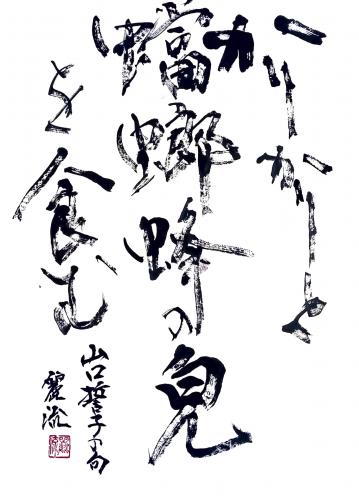 かりかりと
蟷螂蜂の皃
を食む
山口誓子の句
麗流